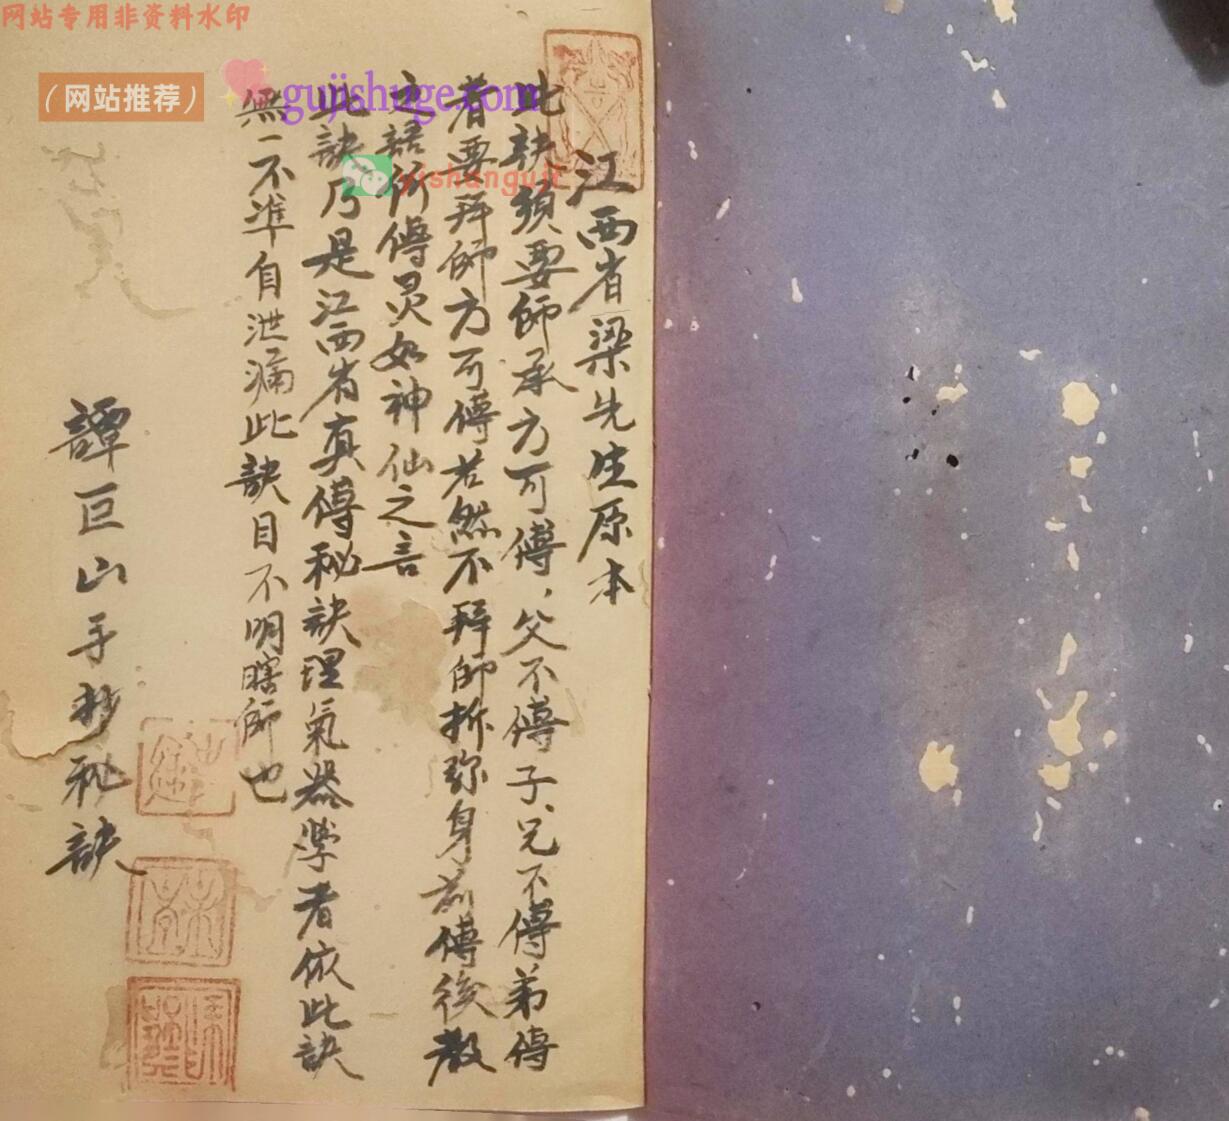 网站专用非资料水印
（网站推荐）
gujishuge.com
yishanguji
江西省梁先生原本
此訣須要師承方可傳、父不傳子、兄不傳弟傳
者要拜師方可傳若然不拜師折弥身前傳後教
之語所傳灵如神仙之言
此訣乃是江西省真傳秘訣理氣器学者依此訣
無一不準自泄漏此訣目不明瞎師也
譚巨山手抄秘訣